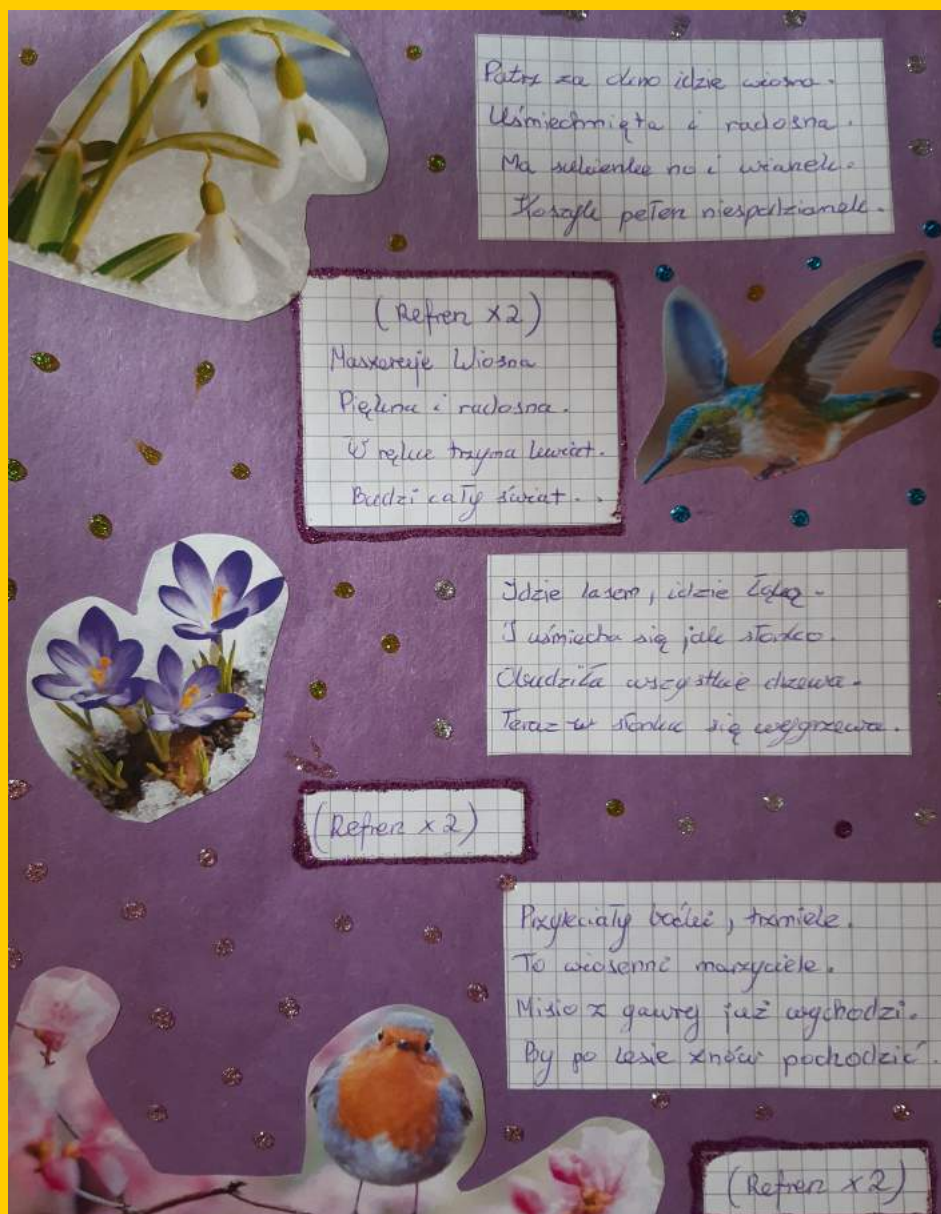 Patrz za okno idzie wiosna.
Uśmiechnięta i radosna.
Ma sukienkę no i wianek.
Koszyk pełen niespodzianek.
(Refren x2)
Maszeruje Wiosna
Piękna i radosna.
W ręku trzyma kwiat.
Budzi cały świat..
Idzie lasem, idzie łąką.
I uśmiecha się jak słonko.
Obudziła wszystkie drzewa.
Teraz w słonku się wygrzewa.
(Refren x2)
Przyleciały boćki, trzmiele.
To wiosenni marzyciele.
Misio z gawry już wychodzi.
By po lesie znów pochodzić.
(Refren x2)